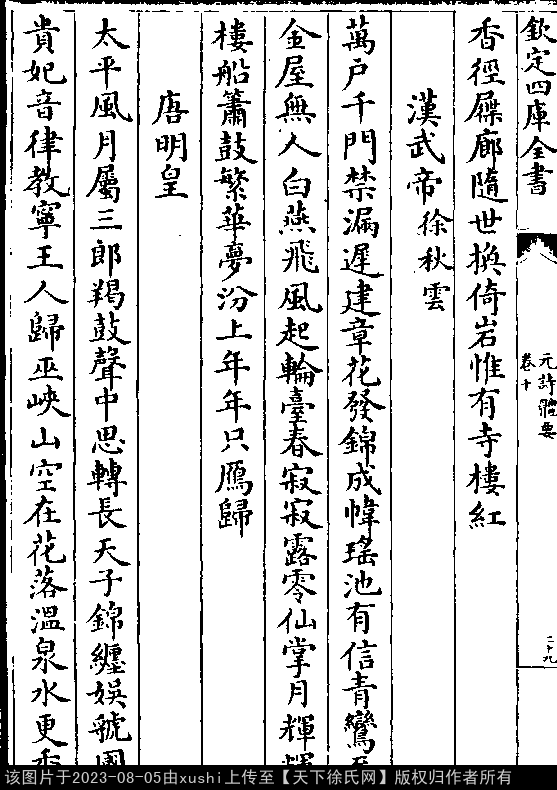 欽定四庫全書
元詩體要
卷十
二十九
香徑屧廊隨世換倚岩惟有寺樓紅
漢武帝 徐秋雲
萬戶千門禁漏遲建章花發錦成幃瑤池有信青鸞
金屋無人白燕飛風起輪臺春寂寂露零仙掌月輝
樓船簫鼓繁華夢汾上年年只鴈歸
唐明皇
太平風月屬三郎羯鼓聲中思轉長天子錦纏娛虢國
貴妃音律教寧王人歸巫峽山空在花落溫泉水更香
该图片于2023-08-05由xushi上传至【天下徐氏网】版权归作者所有